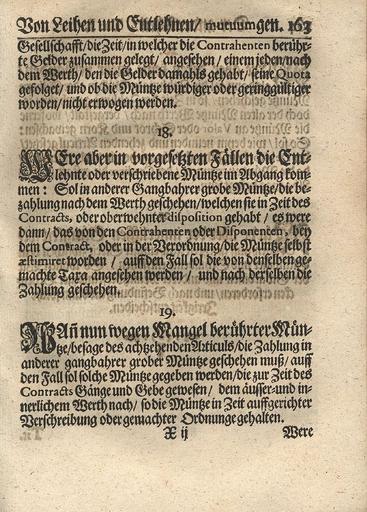 Von Leihen und Entlehnen / mutuum gen. 163
Gesellschafft / die Zeit / in welcher die Contrahenten berühr-
te Gelder zusammen gelegt / angesehen / einem jeden / nach
dem Werth / den die Gelder damahls gehabt / seine Quota
gefolget / und ob die Müntze würdiger oder geringgültiger
worden / nicht erwogen werden.
18.
WEre aber in vorgesetzten Fällen die Ent-
lehnte oder verschriebene Müntze im Abgang kom-
men: Sol in anderer Gangbahrer grobe Müntze / die be-
zahlung nach dem Werth geschehen / welchen sie in Zeit des
Contracts, oder oberwehnter disposition gehabt / es were
dann / das von den Contrahenten oder Disponenten, bey
dem Contract, oder in der Verordnung / die Müntze selbst
æstimiret worden / auff den Fall sol die von denselben ge-
machte Taxa angesehen werden / und nach derselben die
Zahlung geschehen.
19.
WAñ nun wegen Mangel berührter Mün-
tze / besage des achtzehenden Articuls / die Zahlung in
anderer gangbahrer grober Müntze geschehen muß / auff
den Fall sol solche Müntze gegeben werden / die zur Zeit des
Contracts Gänge und Gebe gewesen / dem äusser- und in-
nerlichem Werth nach / so die Müntze in Zeit auffgerichter
Verschreibung oder gemachter Ordnunge gehalten.
X ij Were